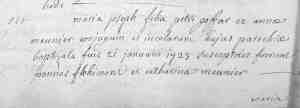 hodie
maria joseph filia petri et annæ
meunier conjugum et incolarum hujus parochiæ
baptizata fuit 21 januarii 1723 susceptores fuerunt
joannes et catharina meunier
maria